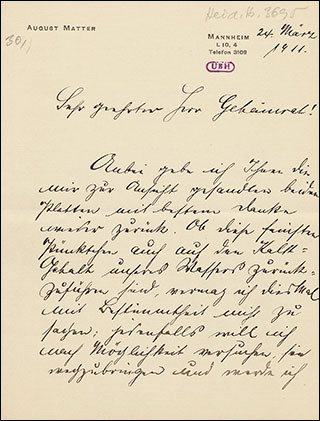 Heid. Hs. 3695
AUGUST MATTER
30,1
MANNHEIM
L 10, 4
Telefon 3109
24. März
1911.
UBH
Sehr geehrter Herr Geheimrat!
Anbei gebe ich Ihnen die
mir zur Ansicht gesandten beiden
Platten mit bestem Danke
wieder zurück. Ob diese feinsten
Pünktchen auch auf den Kalk-
Gehalt unseres Wassers zurück-
zuführen sind, vermag ich diesmal
mit Bestimmtheit nicht zu
sagen; jedenfalls will ich
nach Möglichkeit versuchen, sie
wegzubringen und werde ich